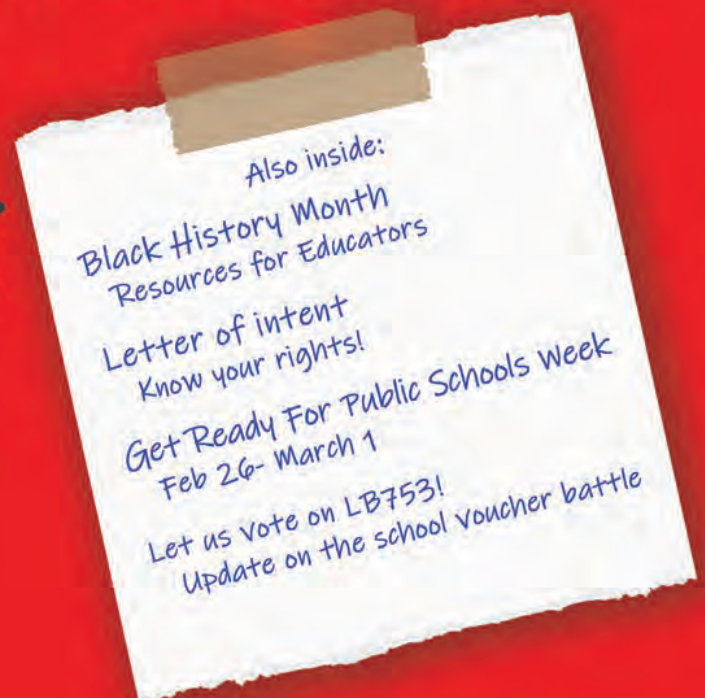 Also inside:
Black History Month
Resources for Educators
Letter of intent
Know your rights!
Get Ready For Public Schools Week
Feb 26- March 1
Let us vote on LB753!
Update on the school voucher battle